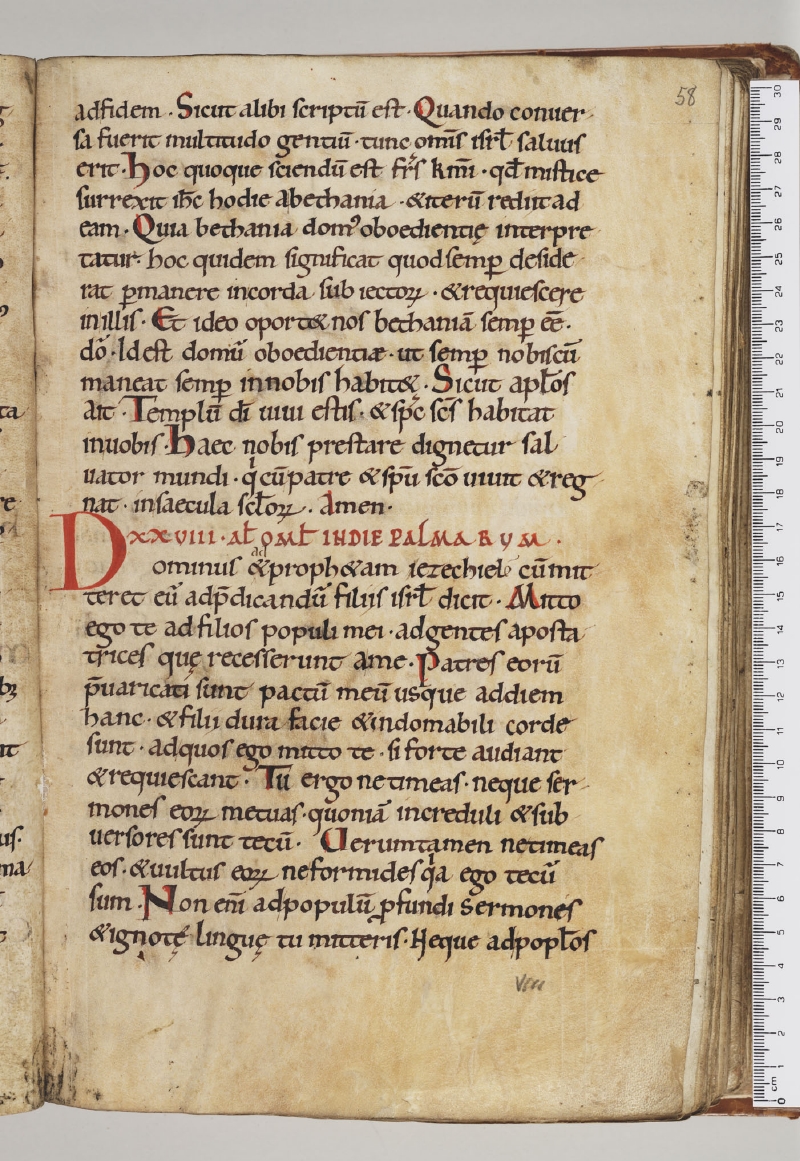 58
adfidem · Sicut alibi scriptū est · Quando conuer
sa fuerit multitudo gentiū · tunc omīs isrł saluus
erit · Hoc quoque sciendū est frs̄ kmī · qđ mistice
surrexit ihc̄ hodie abethania · &iterū rediit ad
eam · Quia bethania domꝰ oboedientię interpre
tatur hoc quidem significat quod semꝑ deside
rat ꝑmanere incorda subiectoꝝ · &requiescere
inillis · Et ideo oport& nos bethaniā semꝑ eē ·
dō · Idest domū oboedientiae · ut semꝑ nobiscū
maneat semꝑ innobis habit& · Sicut apłos
ait · Templū dī uiui estis · &spc̄ scs̄ habitat
inuobis · Haec nobis prestare dignetur sal
uator mundi · qi cū patre &spū scō uiuit &reg
nat · insaecula scłoꝝ · Amen ·
XXVIII · AŁ OMŁ IN DIE PALMARUM ·
Dominus ad &proph&am iezechiel cū mit
teret eū adp̄dicandū filiis isrł dicit · Mitto
ego te adfilios populi mei · adgentes aposta
trices quę recesserunt ame · Patres eorū
p̄uaricati sunt pactū meū usque addiem
hanc · &filii dura facie &indomabili corde
sunt · adquos ego mitto te · si forte audiant
&requiescant · Tū ergo netimeas · neque ser
mones eoꝝ metuas · quoniā increduli &sub
uersores sunt tecū · Uerumtamen netimeas
eos · &uultus eoꝝ neformides qa ego tecū
sum · Non enī adpopulū ꝓfundi sermones
&ignotę linguę tu mitteris · Neque adpopłos
VIII